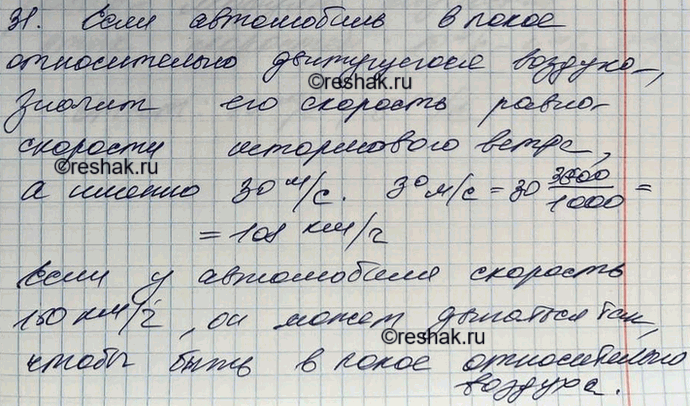 31. Если автомобиль в покое
относительно движущегося воздуха,
©reshak.ru
значит его скорость равна
скорости штормового ветра,
©reshak.ru
а именно 30 м/с. 30 м/с = 30 3600/1000 =
= 108 км/ч
Если у автомобиля скорость
150 км/ч, он может двигаться так,
©reshak.ru
чтобы быть в покое относительно
воздуха.